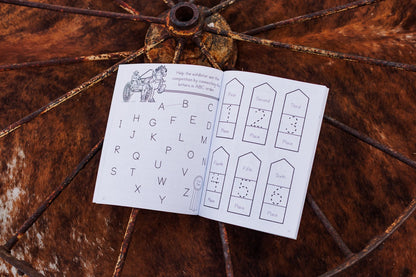 Help the exhibitor win the
competition by connecting the
letters in ABC order.
A B C
I H G F E D
J K L M
P O N
R Q U V
S T W
X Y Z
First
1
Place
Second
2
Place
Third
3
Place
Fourth
4
Place
Fifth
5
Place
Sixth
6
Place